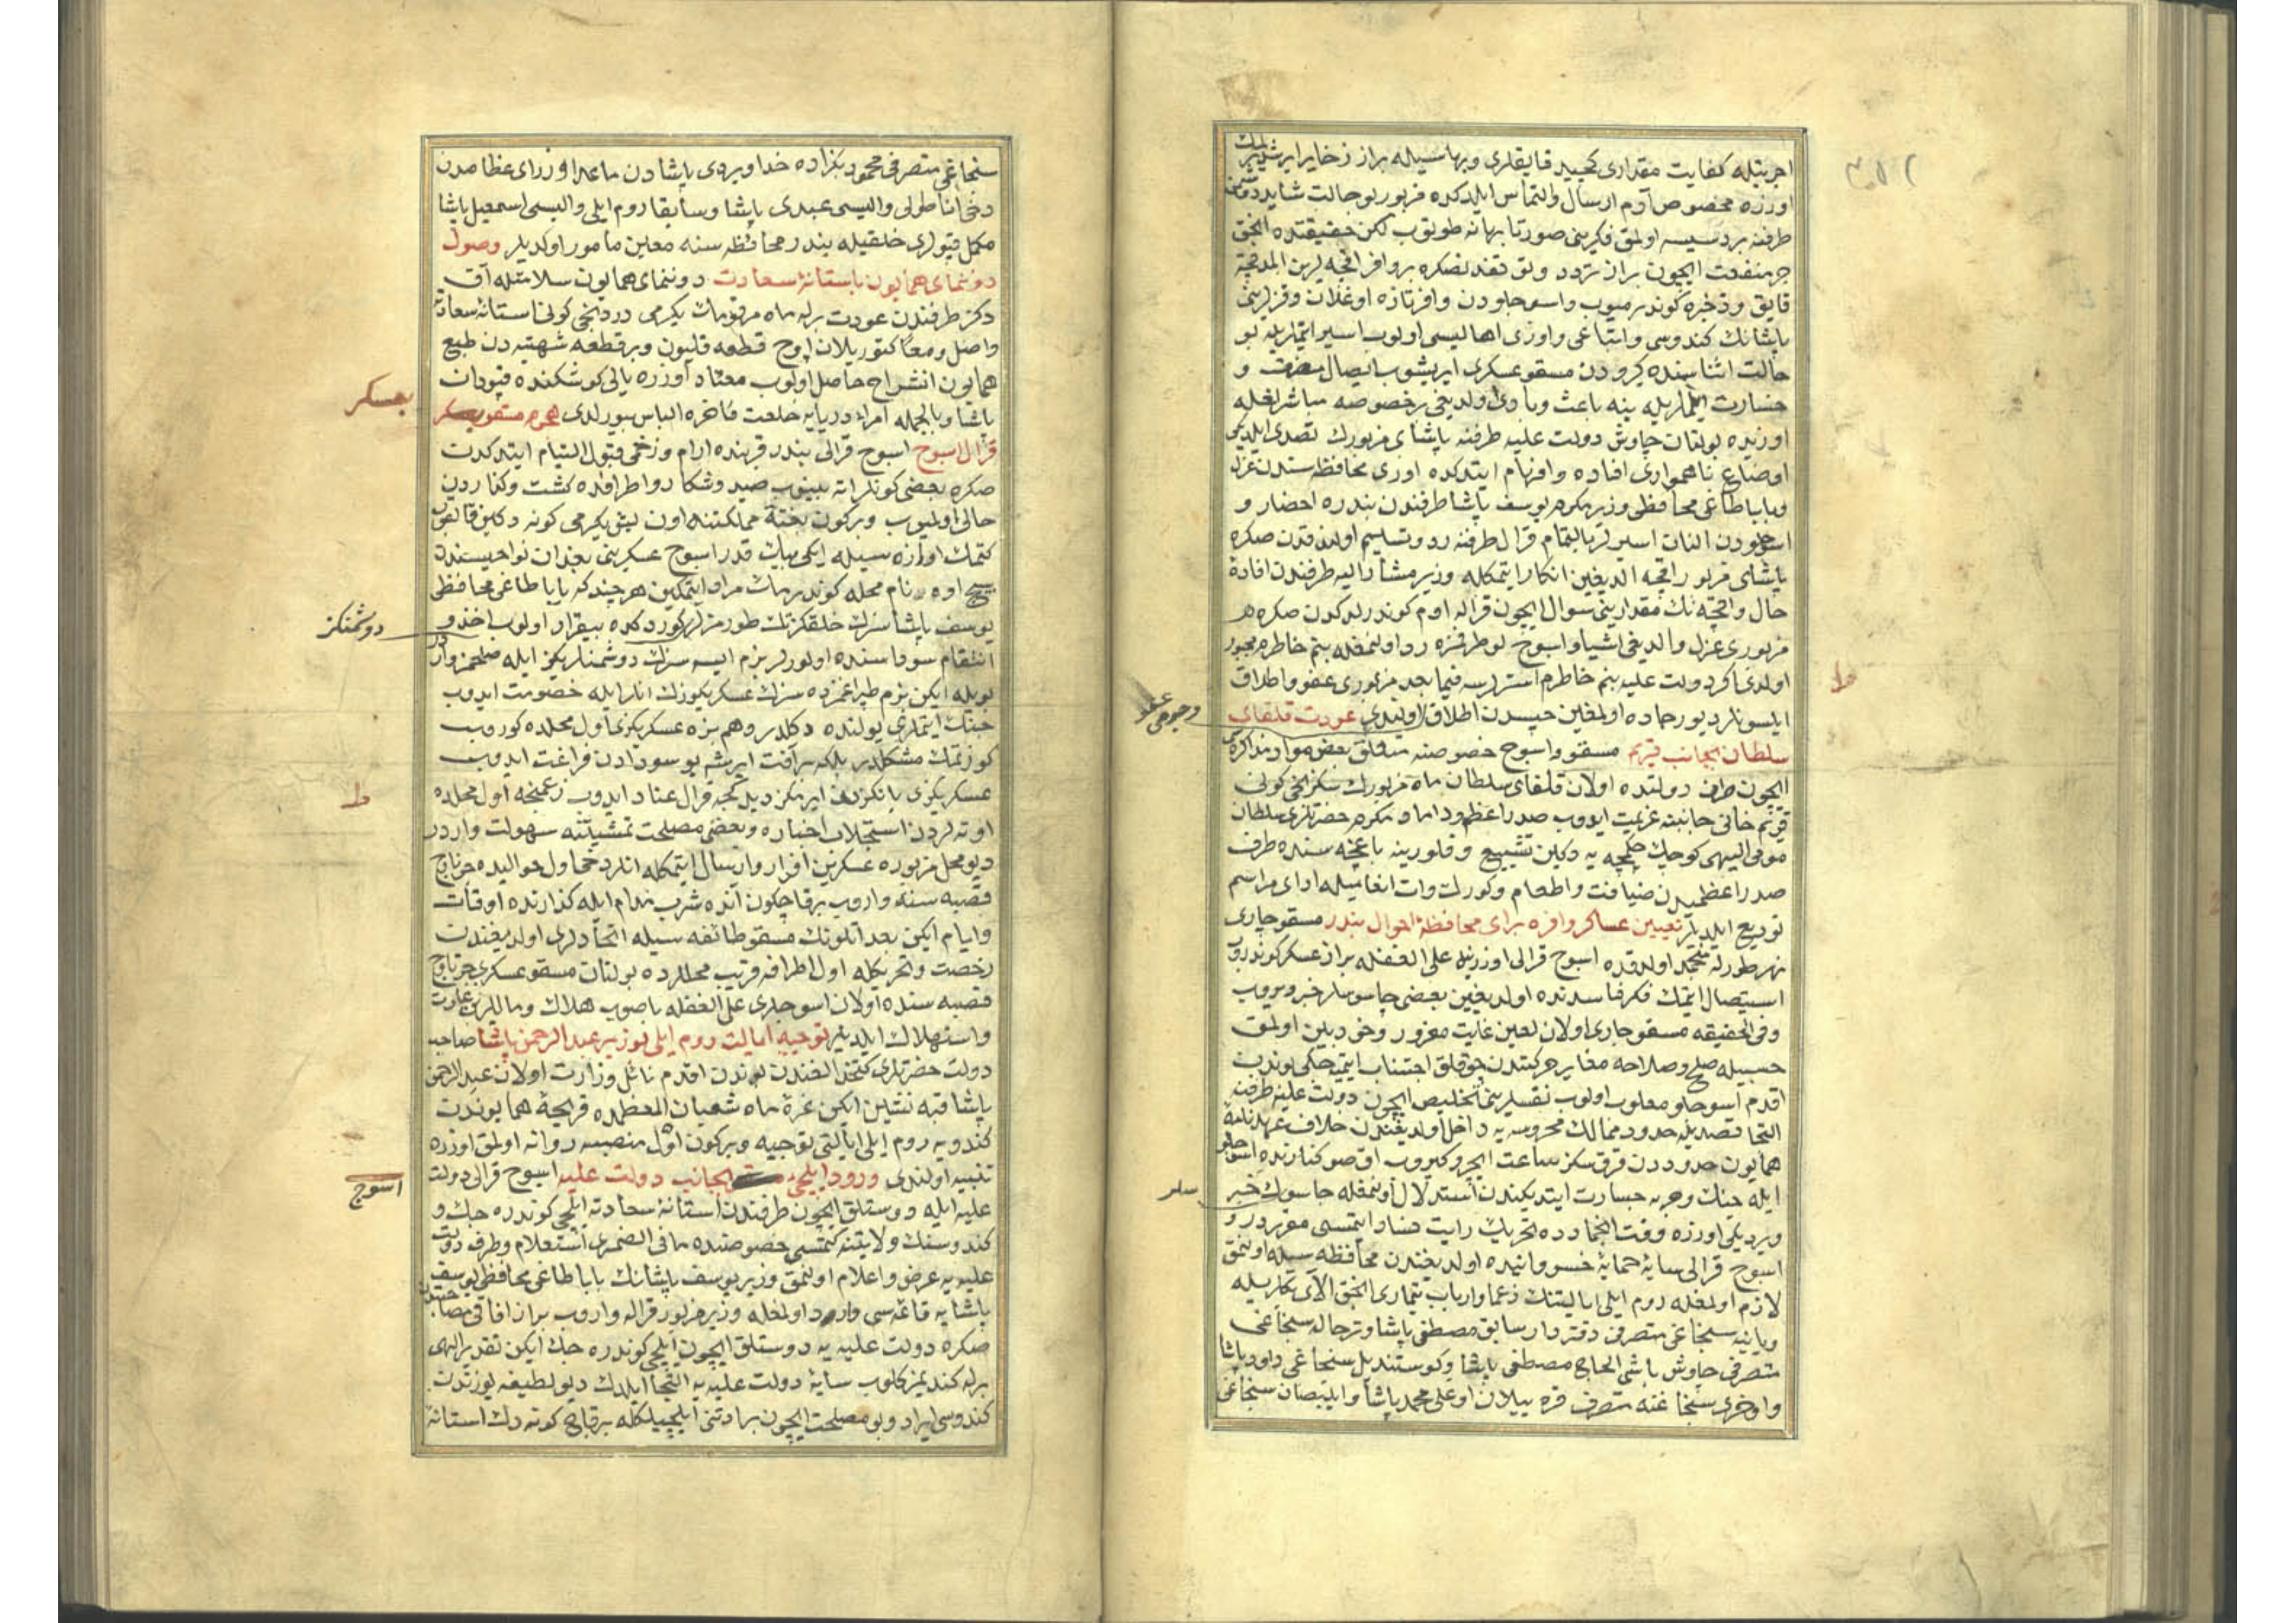 اجرتيله كفايت مقدارى كچيد قايقلرى وبهاسيله براز ذخاير ايرشديرلمك
اوزره مخصوص آدم ارسال والتماس ايلدكده مزبور بو حالت شايد دوشمن
طرفنه بر دسيسه اولمق فكرينى صورتا بهانه طوتوب لكن حقيقتده انجق
جر منفعت ايچون براز تردد وتوقفدنصكره بر وافر اقچه لرين المدقچه
قايق وذخيره كوندرميوب واسوجلودن وافر تازه اوغلان وقزلرينى
پاشانك كندوسى واتباعى واوزى اهاليسى اولوب اسير ايتملريله بو
حالت اثناسنده كيرودن مسقو عسكرى ايريشوب ايصال مضرت و
خسارت ايتملريله ينه باعث وبادى اولديغى بر خصوصه مباشر لغله
اوزيده بولنان چاوش دولت عليه طرفنه پاشاى مزبورك تصدى ايلديكى
اوضاع ناهموارى افاده وافهام ايتدكده اوزى محافظه سندن عزل
وبابا طاغى محافظى وزير مكرم يوسف پاشا طرفندن بندره احضار و
اسوجلودن النان اسيرلر بالتمام قرال طرفنه رد وتسليم اولندقدن صكره
پاشاى مزبور اقچه الديغين انكار ايتمكله وزير مشار اليه طرفندن افادهٔ
حال واقچه نك مقدارينى سوال ايچون قراله ادم كوندرلدكدن صكره هر
مزبورى عزل والديغى اشيا واسوج لو طرفمزه رد اولنمغله بنم خاطرم مجبور
اولدى اكر دولت عليه بنم خاطرم استرلرسه فيما بعد مزبورى عفو واطلاق
ايلسونلر ديو رجاده اولمغين حبسدن اطلاق اولندى عودت قلغاى
سلطان بجانب قريم مسقو واسوج خصوصنه متعلق بعض مواد مذاكره سى
ايچون طرف دولتده اولان قلغاى سلطان ماه مزبورك سكزنجى كونى
قريم خانى جانبنه عزيمت ايدوب صدر اعظم وداماد مكرم حضرتلرى سلطان
مومى اليهى كوچك چكمجه يه دكين تشييع وفلوريه باغچه سنده طرف
صدر اعظميدن ضيافت واطعام وكورك وات انعاميله اداى مراسم
توديع ايلديلر تعيين عساكر وافره براى محافظهٔ احوال بندر مسقو چارى
نهر طورله منجمد اولدقده اسوج قرالى اوزرينه على الغفله براز عسكر كوندروب
استيصال ايتمك فكر فاسدنده اولديغين بعضى جاسوسلر خبر ويروب
وفى الحقيقه مسقو چارى اولان لعين غايت مغرور وخود بين اولمق
حسبيله صلح وصلاحه مغاير حركتدن چوقلق اجتناب ايتميه جكى بوندن
اقدم اسوجلو مغلوب اولوب نفسلرينى تخليص ايچون دولت عليه طرفنه
التجا قصديله حدود ممالك محروسه يه داخل اولديغندن خلاف عهدنامهٔ
همايون حدوددن قرق سكز ساعت ايچرو كيروب اق صو كنارنده اسوجلو
ايله جنك وحربه جسارت ايتديكندن استدلال اولنمغله جاسوسلر خبر
ويرديكى اوزره وقت انجمادده تحريك رايت فساد ايتمسى مقرردر و
اسوج قرالى سايهٔ حمايهٔ خسروانيده اولديغندن محافظه سيله اولنمق
لازم اولمغله روم ايلى ايالتنك زعما وارباب تيمارى انجق الاى بكلريله
ويانيه سنجاغى متصرفى دفتردار سابق مصطفى پاشا وترحاله سنجاغى
متصرفى چاوش باشى الحاج مصطفى پاشا وكوستنديل سنجاغى داود پاشا
واوخرى سنجاغنه متصرف قره ييلان اوغلى محمد پاشا وايلبصان سنجاغى
وجوهى
سلر
ط
سنجاغى متصرفى محمود بكزاده خداويردى پاشادن ماعدا وزراى عظامدن
دخى اناطولى واليسى عبدى پاشا وسابقا روم ايلى واليسى اسمعيل پاشا
مكمل قپولرى خلقيله بندر محافظه سنه معين مأمور اولديلر وصول
دوننماى همايون باستانهٔ سعادت دوننماى همايون سلامتله آق
دكز طرفندن عودت برله ماه مرقومك يكرمى دردنجى كونى استانهٔ سعادته
واصل ومعا كتوريلان اوچ قطعه قليون وبر قطعه شهتيه دن طبع
همايون انشراح حاصل اولوب معتاد اوزره يالى كوشكنده قپودان
پاشا وبالجمله امراء دريايه خلعت فاخره الباس بيورلدى هجوم مسقو بعسكر
قرال اسوج اسوج قرالى بندر قربنده ارام وزخمى قبول التيام ايتدكدن
صكره بعضى كونلر اته بينوب صيد وشكار واطرافده كشت وكذاردن
خالى اولميوب وبركون بغتة مملكتنه اون بش يكرمى كونه دكين قالقوب
كتمك اوزره سيله ايكى بيك قدر اسوج عسكرينى بغدان نواحيسندن
نام محله كوندرمك مراد ايتمكين هر چند كه بابا طاغى محافظى
يوسف پاشا سزك خلقكزك طورمزلر كوردكده بيقرار اولوب اخذ و
انتقام سوداسنده اولورلر بزم ايسه سزك دوشمنلريكز ايله صلحمز واردر
بويله ايكن بزم طپراغمزده سزك عسكريكوزك انلر ايله خصومت ايدوب
جنك ايتملرى يولنده دكلدر وهم بزه عسكريكزى اول محلده كوروب
كوزتمك مشكلدر بلكه بر آفت ايرشه بو سودادن فراغت ايدوب
عسكريكزى ياكزدن ايرمكز ديدكجه قرال عناد ايدوب زعمنجه اول محلده
اوته لردن استجلاب اخباره وبعضى مصلحت تمشيتنه سهولت واردر
ديو محل مزبوره عسكرين افراز وارسال ايتمكله انلر دخى اول حواليده چرناوج
قصبه سنه واروب برقاچ كون آنده شرب مدام ايله كذارنده اوقات
وايام ايكن بغدانلونك مسقو طائفه سيله اتحادلرى اولديغندن
رخصت وتحريكله اول اطرافه قريب محللرده بولنان مسقو عسكرى چرناوج
قصبه سنده اولان اسوجلرى على الغفله باصوب هلاك وماللرين غارت
واستهلاك ايلديلر توجيه ايالت روم ايلى بوزير عبد الرحمن پاشا صاحب
دولت حضرتلرى كتخدالغندن بوندن اقدم نائل وزارت اولان عبد الرحمن
پاشا قبه نشين ايكن غرهٔ ماه شعبان المعظمده قريحهٔ همايوندن
كندويه روم ايلى ايالتى توجيه وبركون اول منصبنه روانه اولمق اوزره
تنبيه اولندى ورود ايلچئ بجانب دولت عليه اسوج قرالى دولت
عليه ايله دوستلق ايچون طرفندن استانهٔ سعادته ايلچى كوندره جك و
كندوسنك ولايتنه كتمسى خصوصنده ما فى الضميرى استعلام وطرف دولت
عليه يه عرض واعلام اولنمق وزير يوسف پاشانك بابا طاغى محافظى يوسف
پاشايه قائمه سى وارد اولمغله وزير مزبور قراله واروب براز افاقى مصاحبتدن
صكره دولت عليه يه دوستلق ايچون ايلچى كوندره جك ايكن تقدير الهى
برله كنديمز كلوب سايهٔ دولت عليه يه التجا ايلدك ديو لطيفه يوزندن
كندوسى ايراد وبو مصلحت ايچون برادتنى ايلچيلكله برقاچ كونه دك استانهٔ
بعسكر
دوشمنكز
ط
اسوج